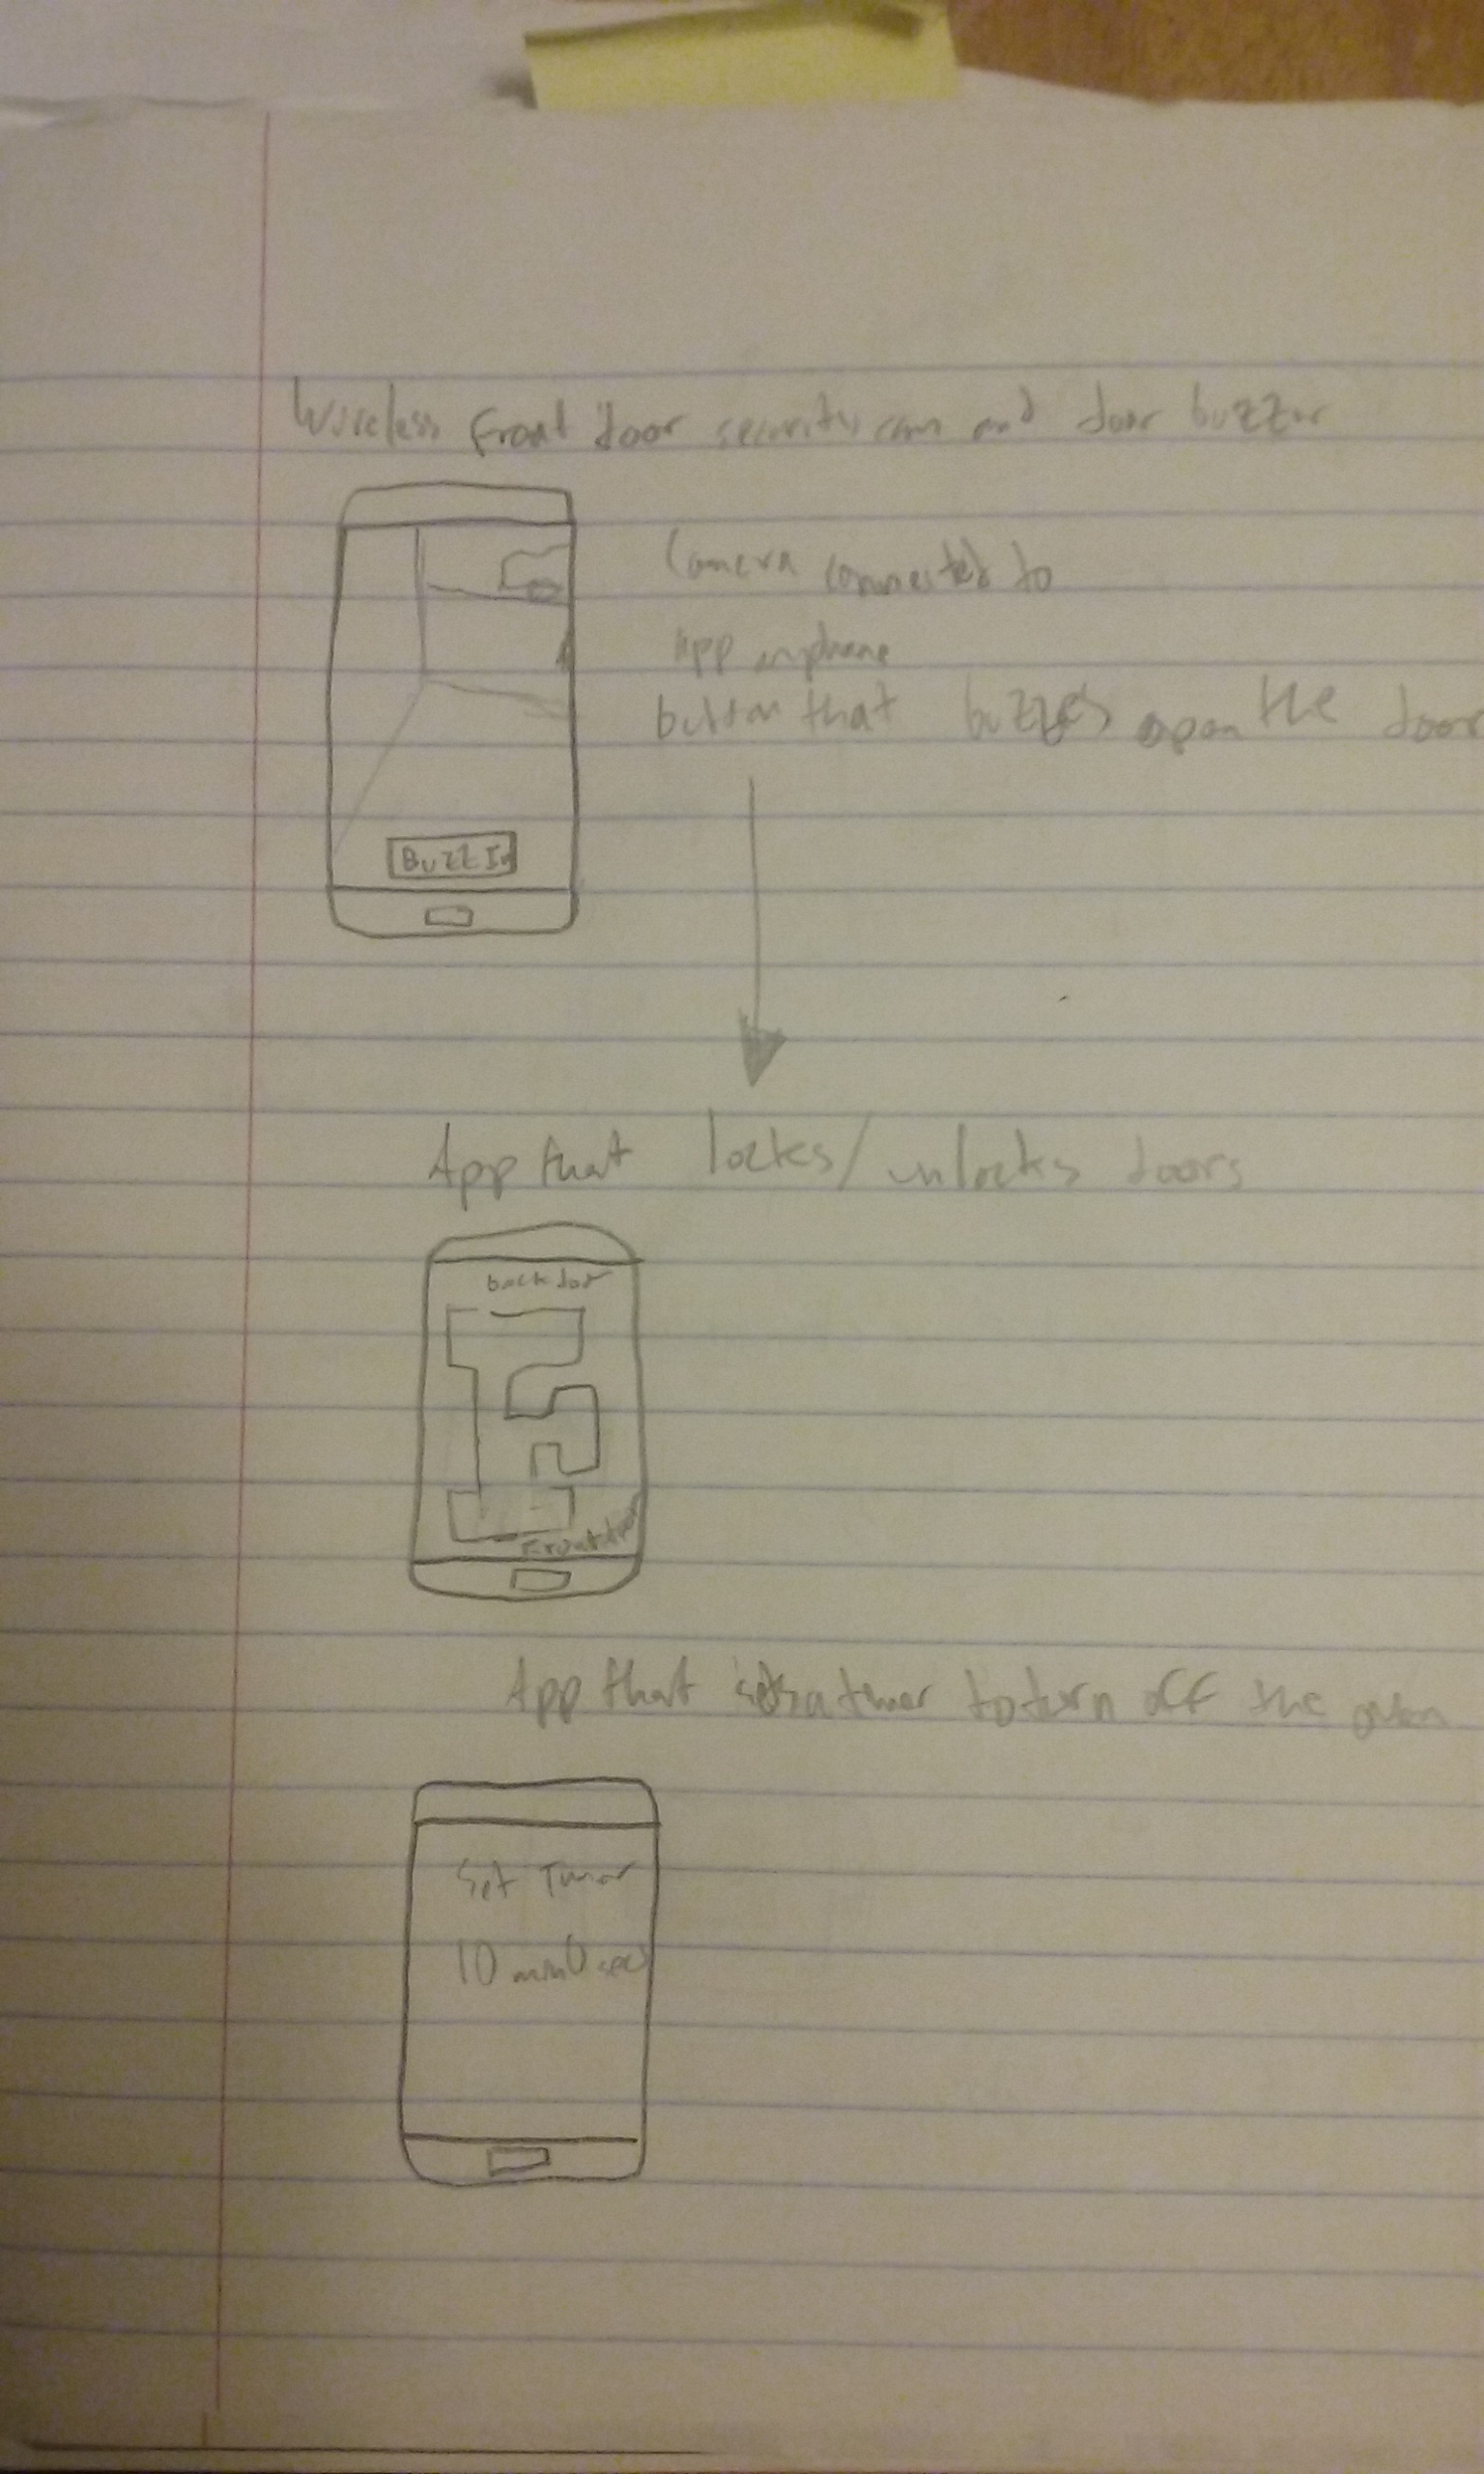 Wireless Front door security cam and door buzzer
Camera connected to
App on phone
button that buzzes open the door
Buzz In
App that locks/unlocks doors
back door
Front door
App that sets a timer to turn off the oven
Set Timer
10 min 0 sec